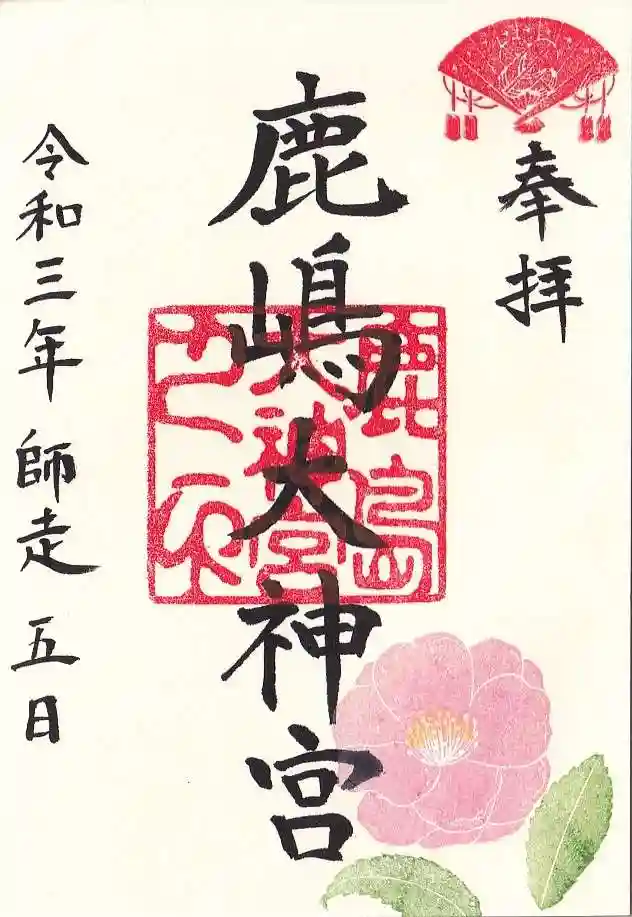 奉拝
鹿嶋大神宮
鹿島
大神宮
之印
令和三年 師走 五日